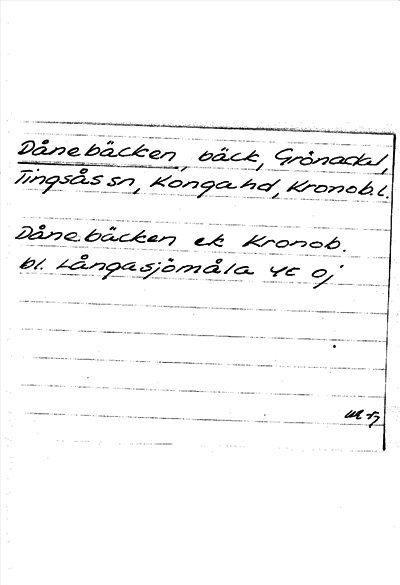 Dånebäcken, bäck, Grönadal,
Tingsås sn, Konga hd, Kronob. l.
Dånebäcken ek Kronob.
bl. Långasjömåla 4c oj